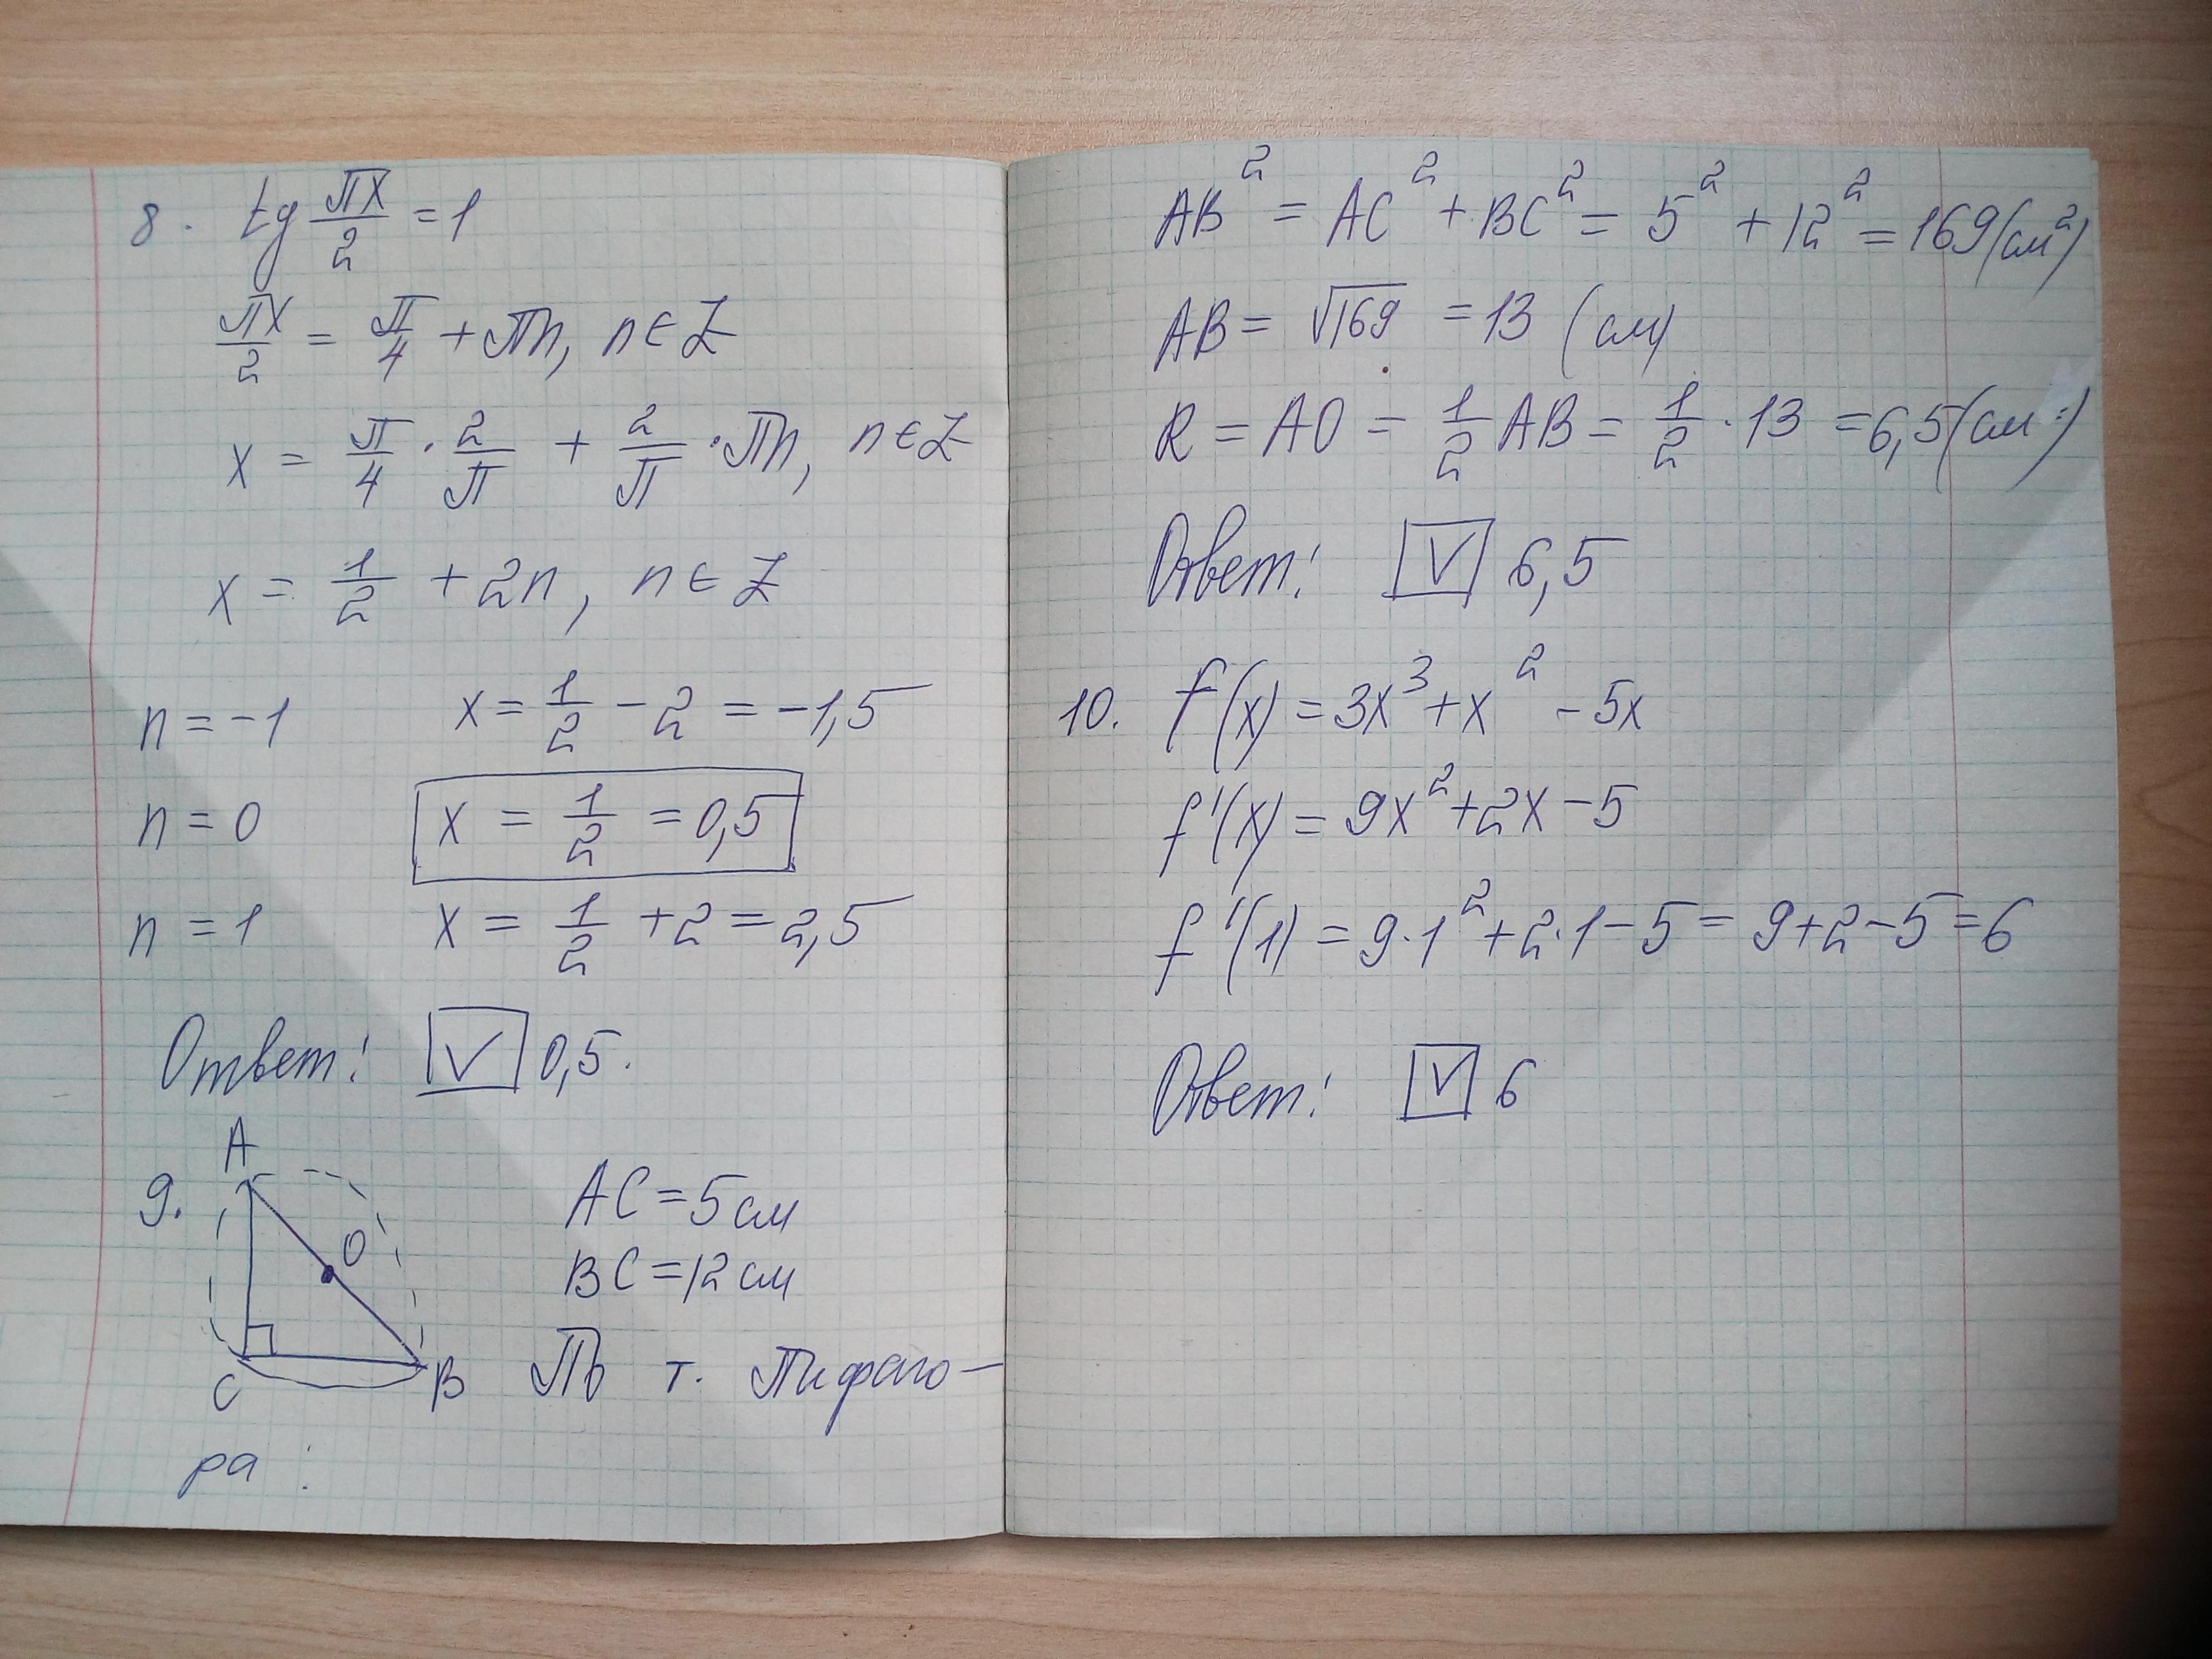 8. tg πx/2 = 1
πx/2 = π/4 + πn, n ∈ Z
x = π/4 · 2/π + 2/π · πn, n ∈ Z
x = 1/2 + 2n, n ∈ Z
n = -1 x = 1/2 - 2 = -1,5
n = 0 x = 1/2 = 0,5
n = 1 x = 1/2 + 2 = 2,5
Ответ: V 0,5.
9. A O C B
AC = 5 см
BC = 12 см
По т. Пифаго-
ра :
AB² = AC² + BC² = 5² + 12² = 169 (см²)
AB = √169 = 13 (см)
R = AO = 1/2 AB = 1/2 · 13 = 6,5 (см)
Ответ: V 6,5
10. f(x) = 3x³ + x² - 5x
f'(x) = 9x² + 2x - 5
f'(1) = 9·1² + 2·1 - 5 = 9+2-5 = 6
Ответ: V 6